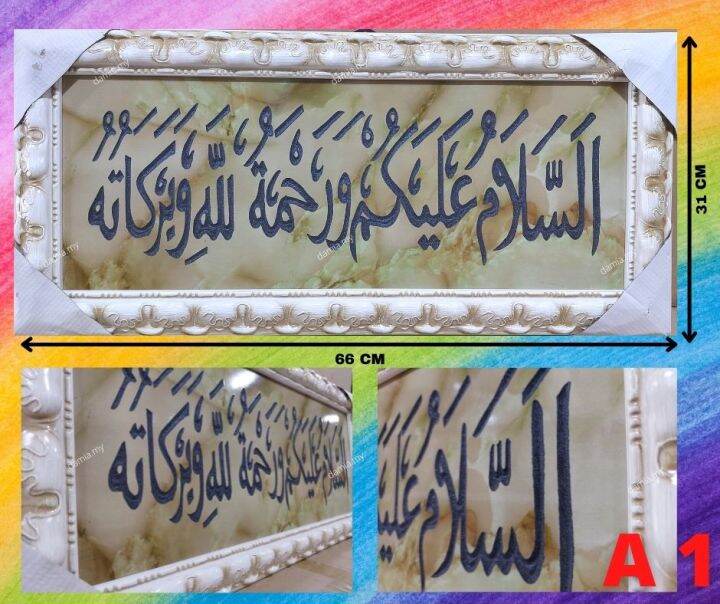 اَلسَّلَامُ عَلَيْكُمْ وَرَحْمَةُ للّٰهِ وَبَرَكَاتُهُ
damia.my
31 CM
66 CM
اَلسَّلَامُ عَلَيْكُمْ وَرَحْمَةُ للّٰهِ وَبَرَكَاتُهُ
damia.my
اَلسَّلَامُ
damia.my
A 1